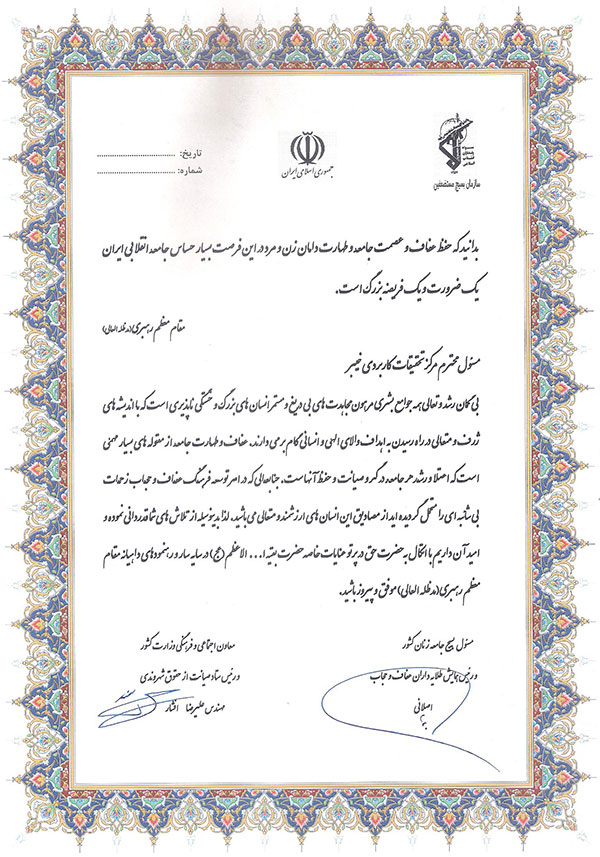 سازمان بسیج مستضعفین
جمهوری اسلامی ایران
تاریخ: ................................
شماره: ................................
بدانید که حفظ عفاف و عصمت جامعه و طهارت دامان زن و مرد در این فرصت بسیار حساس جامعه انقلابی ایران
یک ضرورت و یک فریضه بزرگ است.
مقام معظم رهبری (مدظله العالی)
مسئول محترم مرکز تحقیقات کاربردی خیبر
بی گمان رشد و تعالی همه جوامع بشری مرهون مجاهدت های بی دریغ و مستمر انسان های بزرگ و خستگی ناپذیری است که با اندیشه های
ژرف و متعالی در راه رسیدن به اهداف والای الهی و انسانی گام برمی دارند. عفاف و طهارت جامعه از مقوله های بسیار مهمی
است که اعتلا و رشد هر جامعه در گرو صیانت و حفظ آنهاست. جنابعالی که در امر توسعه فرهنگ عفاف و حجاب زحمات
بی شائبه ای را متحمل گردیده اید از مصادیق این انسان های ارزشمند و متعالی می باشید. لذا بدینوسیله از تلاش های شما قدردانی نموده و
امید آن داریم با اتکال به حضرت حق در پرتو عنایات خاصه حضرت بقیه ا... الاعظم (عج) در سایه سار و رهنمودهای داهیانه مقام
معظم رهبری (مدظله العالی) موفق و پیروز باشید.
مسئول بسیج جامعه زنان کشور
و رئیس همایش طلایه داران عفاف و حجاب
اصلانی
معاون اجتماعی و فرهنگی وزارت کشور
و رئیس ستاد صیانت از حقوق شهروندی
مهندس علیرضا افشار